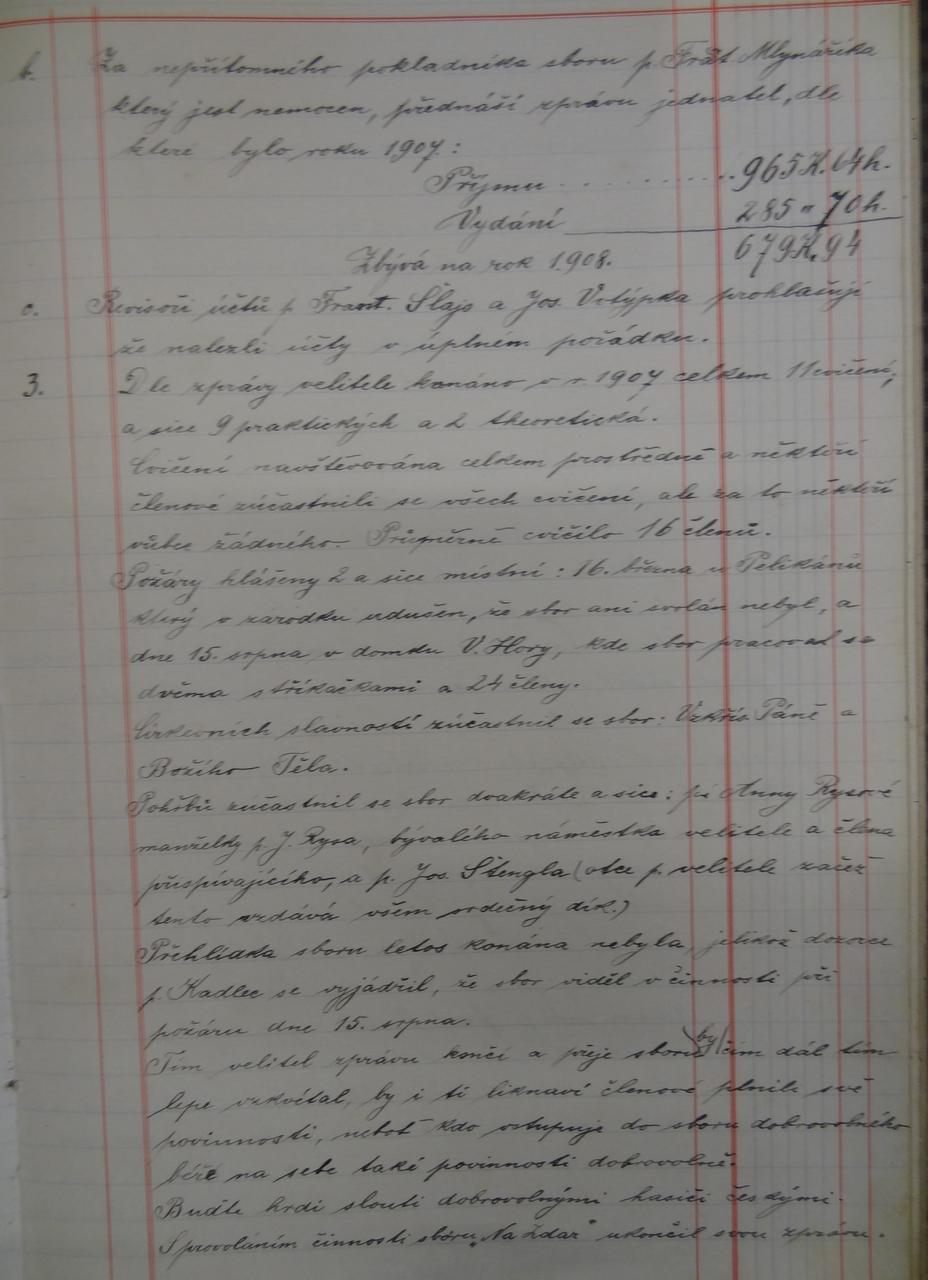 b. Za nepřítomného pokladníka sboru p. Frãt. Mlynáříka
který jest nemocen, přednáší zprávu jednatel, dle
které bylo roku 1907:
Příjmu . . . . . . . . . . 965 K. 64 h.
Vydání 285 " 70 h.
Zbývá na rok 1908. 679 K. 94
c. Revisoři účtů p. Frant. Šlajs a Jos. Votýpka prohlašují
že nalezli účty v úplném pořádku.
3. Dle zprávy velitele konáno v r. 1907 celkem 11 cvičení,
a sice 9 praktických a 2 theoretická.
Cvičení navštěvována celkem prostředně a někteří
členové zúčastnili se všech cvičení, ale za to někteří
vůbec žádného. Průměrně cvičilo 16 členů.
Požáry hlášeny 2 a sice místní: 16. března u Pelikánů
který v zárodku udušen, že sbor ani svolán nebyl, a
dne 15. srpna v domku V. Hory, kde sbor pracoval se
dvěma stříkačkami a 24 členy.
Církevních slavností zúčastnil se sbor: Vzkřís. Páně a
Božího Těla.
Pohřbů zúčastnil se sbor dvakráte a sice: při Anny Rysové
manželky p. J. Rysa, bývalého náměstka velitele a člena
přispívajícího, a p. Jos. Štengla (otce p. velitele začež
tento vzdává všem srdečný dík.)
Přehlídka sboru letos konána nebyla, jelikož dozorce
p. Kadlec se vyjádřil, že sbor viděl v činnosti při
požáru dne 15. srpna.
Tím velitel zprávu končí a přeje sboru by čím dál tím
lépe vzkvétal, by i ti liknaví členové plnili své
povinnosti, neboť kdo vstupuje do sboru dobrovolného
béře na sebe také povinnosti dobrovolně.
Buďte hrdi slouti dobrovolnými hasiči českými.
S provoláním činnosti sboru „Na Zdar" ukončil svou zprávu.